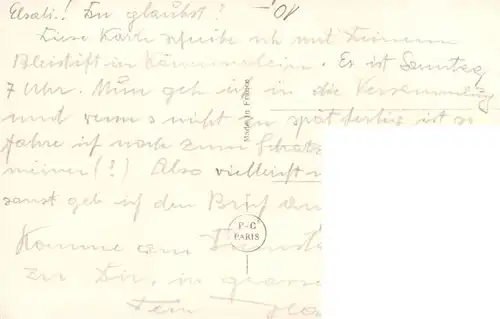 Elsali! Du glaubst?
Diese Karte schreibe ich mit Deinem
Bleistift in Es ist Samstag
7 Uhr. Nun geh ich in die Versammlung
und wenn s nicht zu spät fertig ist so
fahre ich noch zum Schatz
meiner (?) Also vielleicht
sonst geb ich den Brief
Komme am Dienstag
zu Dir, in
Dein
Made in France
P-C
PARIS